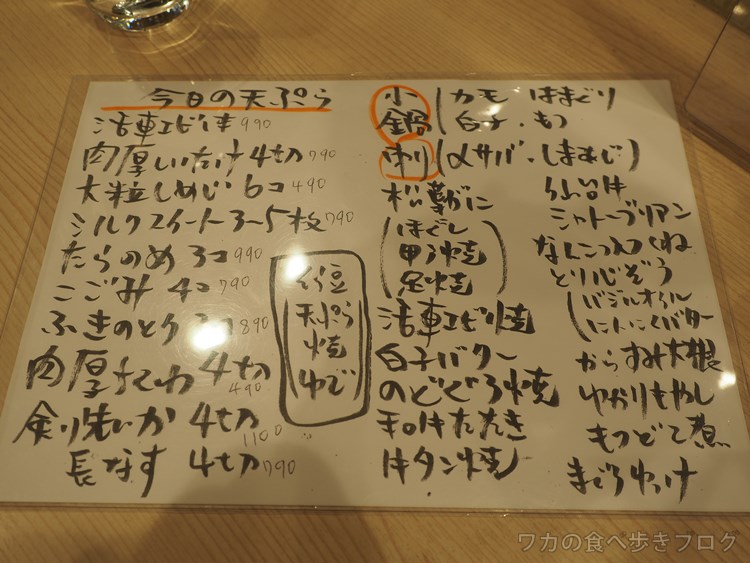 今日の天ぷら
活車エビ1本 990
肉厚しいたけ 4切 790
大粒しめじ 6コ 490
シルクスイート 3〜5枚 790
たらのめ 3コ 990
こごみ 4コ 790
ふきのとう 3コ 890
肉厚ちくわ 4切 490
4切 1100
長なす 4切 790
豆
天ぷら
焼
ゆで
小鍋 (カモ はまぐり
白子・もつ
〆サバ・しまあじ)
松葉がに
(ほぐし
甲ラ焼
足焼)
活車エビ焼
白子バター
のどぐろ焼
牛タン焼
シャトーブリアン
なんこつつくね
とり心ぞう
(バジルオイル
にんにくバター
からすみ大根
ゆかりもやし
もつどて煮
まぐろゆっけ
ワカの食べ歩きブログ